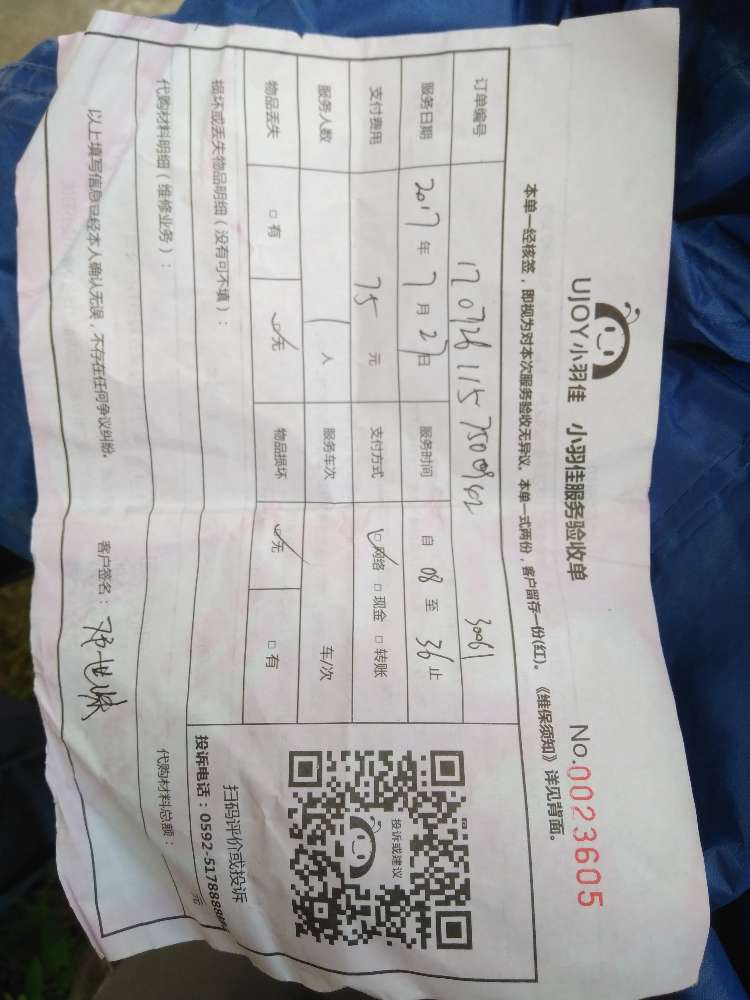 UJOY小羽佳 小羽佳服务验收单 No.0023605
本单一经核签，即视为对本次服务验收无异议。本单一式两份，客户留存一份(红)。《维保须知》详见背面。
订单编号 3061
服务日期 2017年7月27日 服务时间 自 08 至 36 止
支付费用 75 元 支付方式 ☑网络 □现金 □转账
服务人数 1 人 服务车次 车/次
物品丢失 □有 ☑无 物品损坏 ☑无 □有
损坏或丢失物品明细（没有可不填）：
代购材料明细（维修业务）： 代购材料总额： 元
以上填写信息已经本人确认无误，不存在任何争议纠纷。 客户签名：
投诉或建议
扫码评价或投诉
投诉电话：0592-5178888